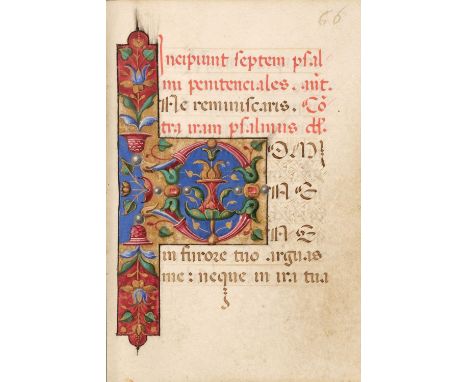 66
Incipiunt septem psal
mi penitenciales. ant.
Ne reminiscaris. Cõ
tra iram psalmus
DOM
NE
NE
in furore tuo arguas
me: neque in ira tua